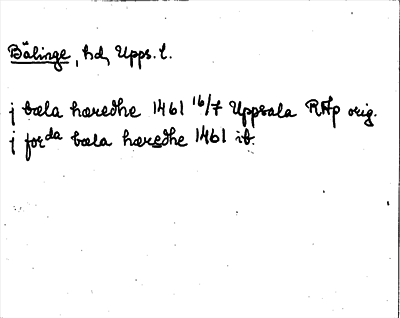 Bälinge, hd, Upps. l.
j bæla hæredhe 1461 16/7 Uppsala RAp orig.
j forda bæla hæredhe 1461 ib.